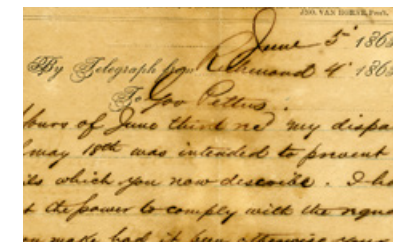 JNO. VAN HORNE, Prest.
June 5 186
By Telegraph from Richmond 4 186
To Gov Pettus.
yours of June third rec my dispa
May 18th was intended to prevent
ils which you now describe. I ha
t the power to comply with the reque
u make had it been